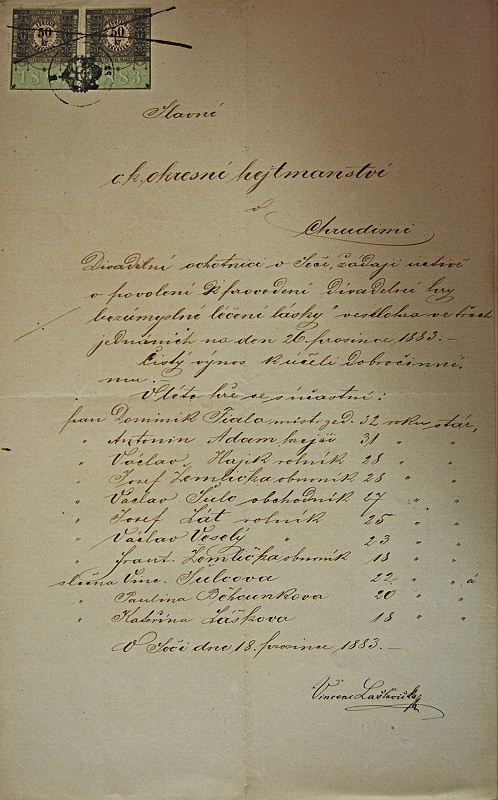 50 50
18 83
Slavné
c.k. okresní hejtmanství
v
Chrudimi
Divadelní ochotníci v Seči, žádají uctivě
o povolení k provedení divadelní hry
"veselohra ve třech
jednáních na den 26. prosince 1883.-
Čistý výnos k účeli dobročinné-
mu.-
V této hře se súčastní:
pan Dominik Fiala mist. zed. 32 roků stár,
" Antonín Adam krejčí 31 " "
" Václav Hajek rolník 28 " "
" Josef Zemlička obuvník 28 " "
" Václav Šulc obchodník 27 " "
" Josef Lát rolník 25 " "
" Václav Veselý " 23 " "
" Frant. Zemlička obuvník 18 " "
slečna Vinc. Šulcova 22 " " a
" Paulina 20 " "
" Kateřina Láškova 18 " "
V Seči dne 18. prosince 1883.-
Vincenc